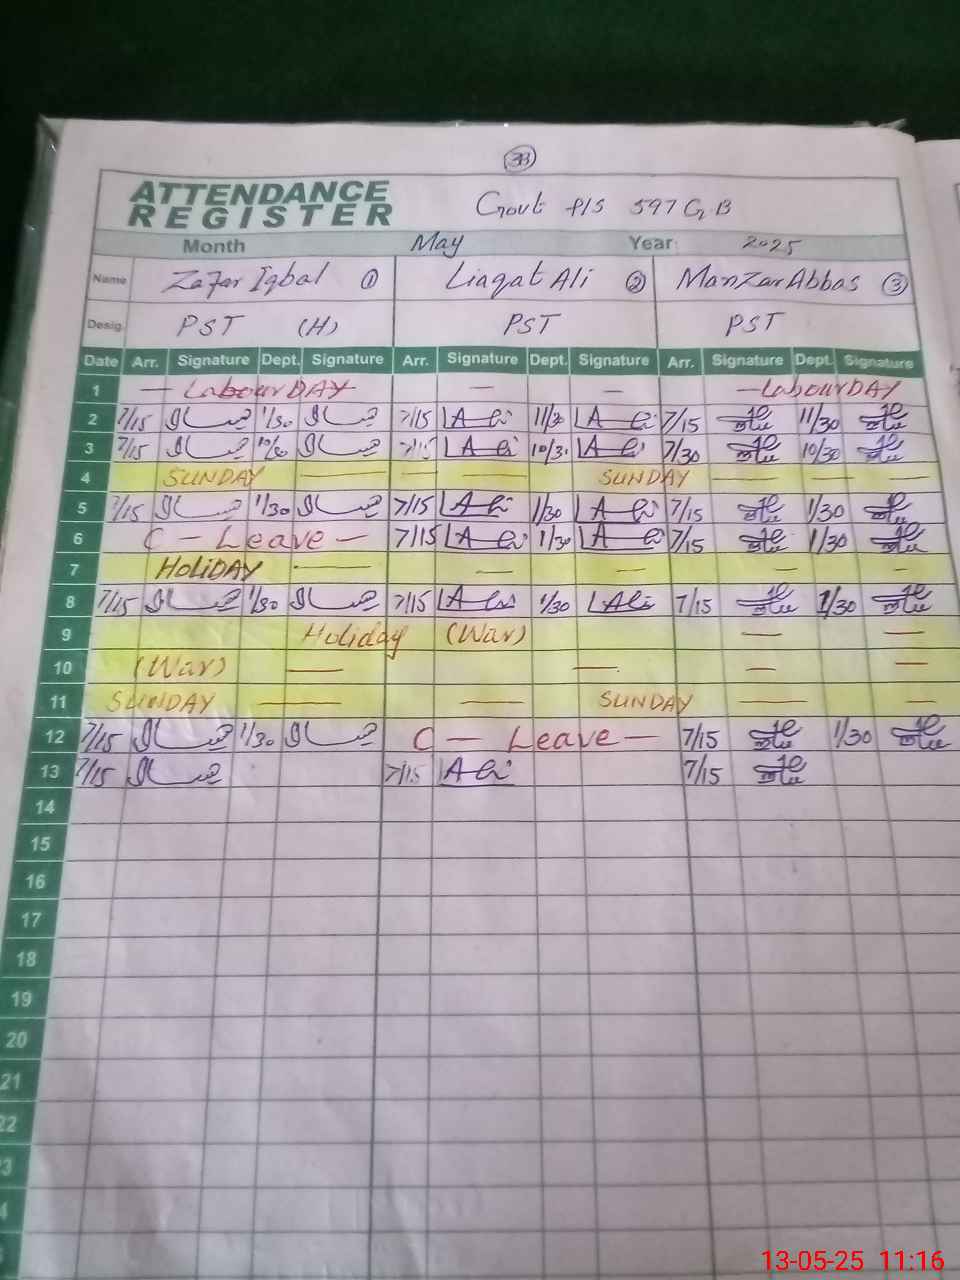 38
ATTENDANCE
REGISTER
Govt P/S 597 G.B
Month May Year: 2025
Name Zafar Iqbal ① Liaqat Ali ② Manzar Abbas ③
Desig. PST (H) PST PST
Date Arr. Signature Dept. Signature Arr. Signature Dept. Signature Arr. Signature Dept. Signature
1 — Labour DAY — — — Labour DAY
2 7/15 1/30 7/15 LAli 11/30 LAli 7/15 11/30
3 7/15 7/15 LAli 10/30 LAli 7/30 10/30
4 SUNDAY — — — SUNDAY — — —
5 7/15 1/30 7/15 LAli 1/30 LAli 7/15 1/30
6 C - Leave - 7/15 LAli 1/30 LAli 7/15 1/30
7 HOLIDAY — — — — —
8 7/15 1/30 7/15 LAli 1/30 LAli 7/15 1/30
9 Holiday (War) — —
10 (War) — — — —
11 SUNDAY — — SUNDAY — —
12 7/15 1/30 C — Leave — 7/15 1/30
13 7/15 7/15 LAli 7/15
14
15
16
17
18
19
20
21
22
13-05-25 11:16